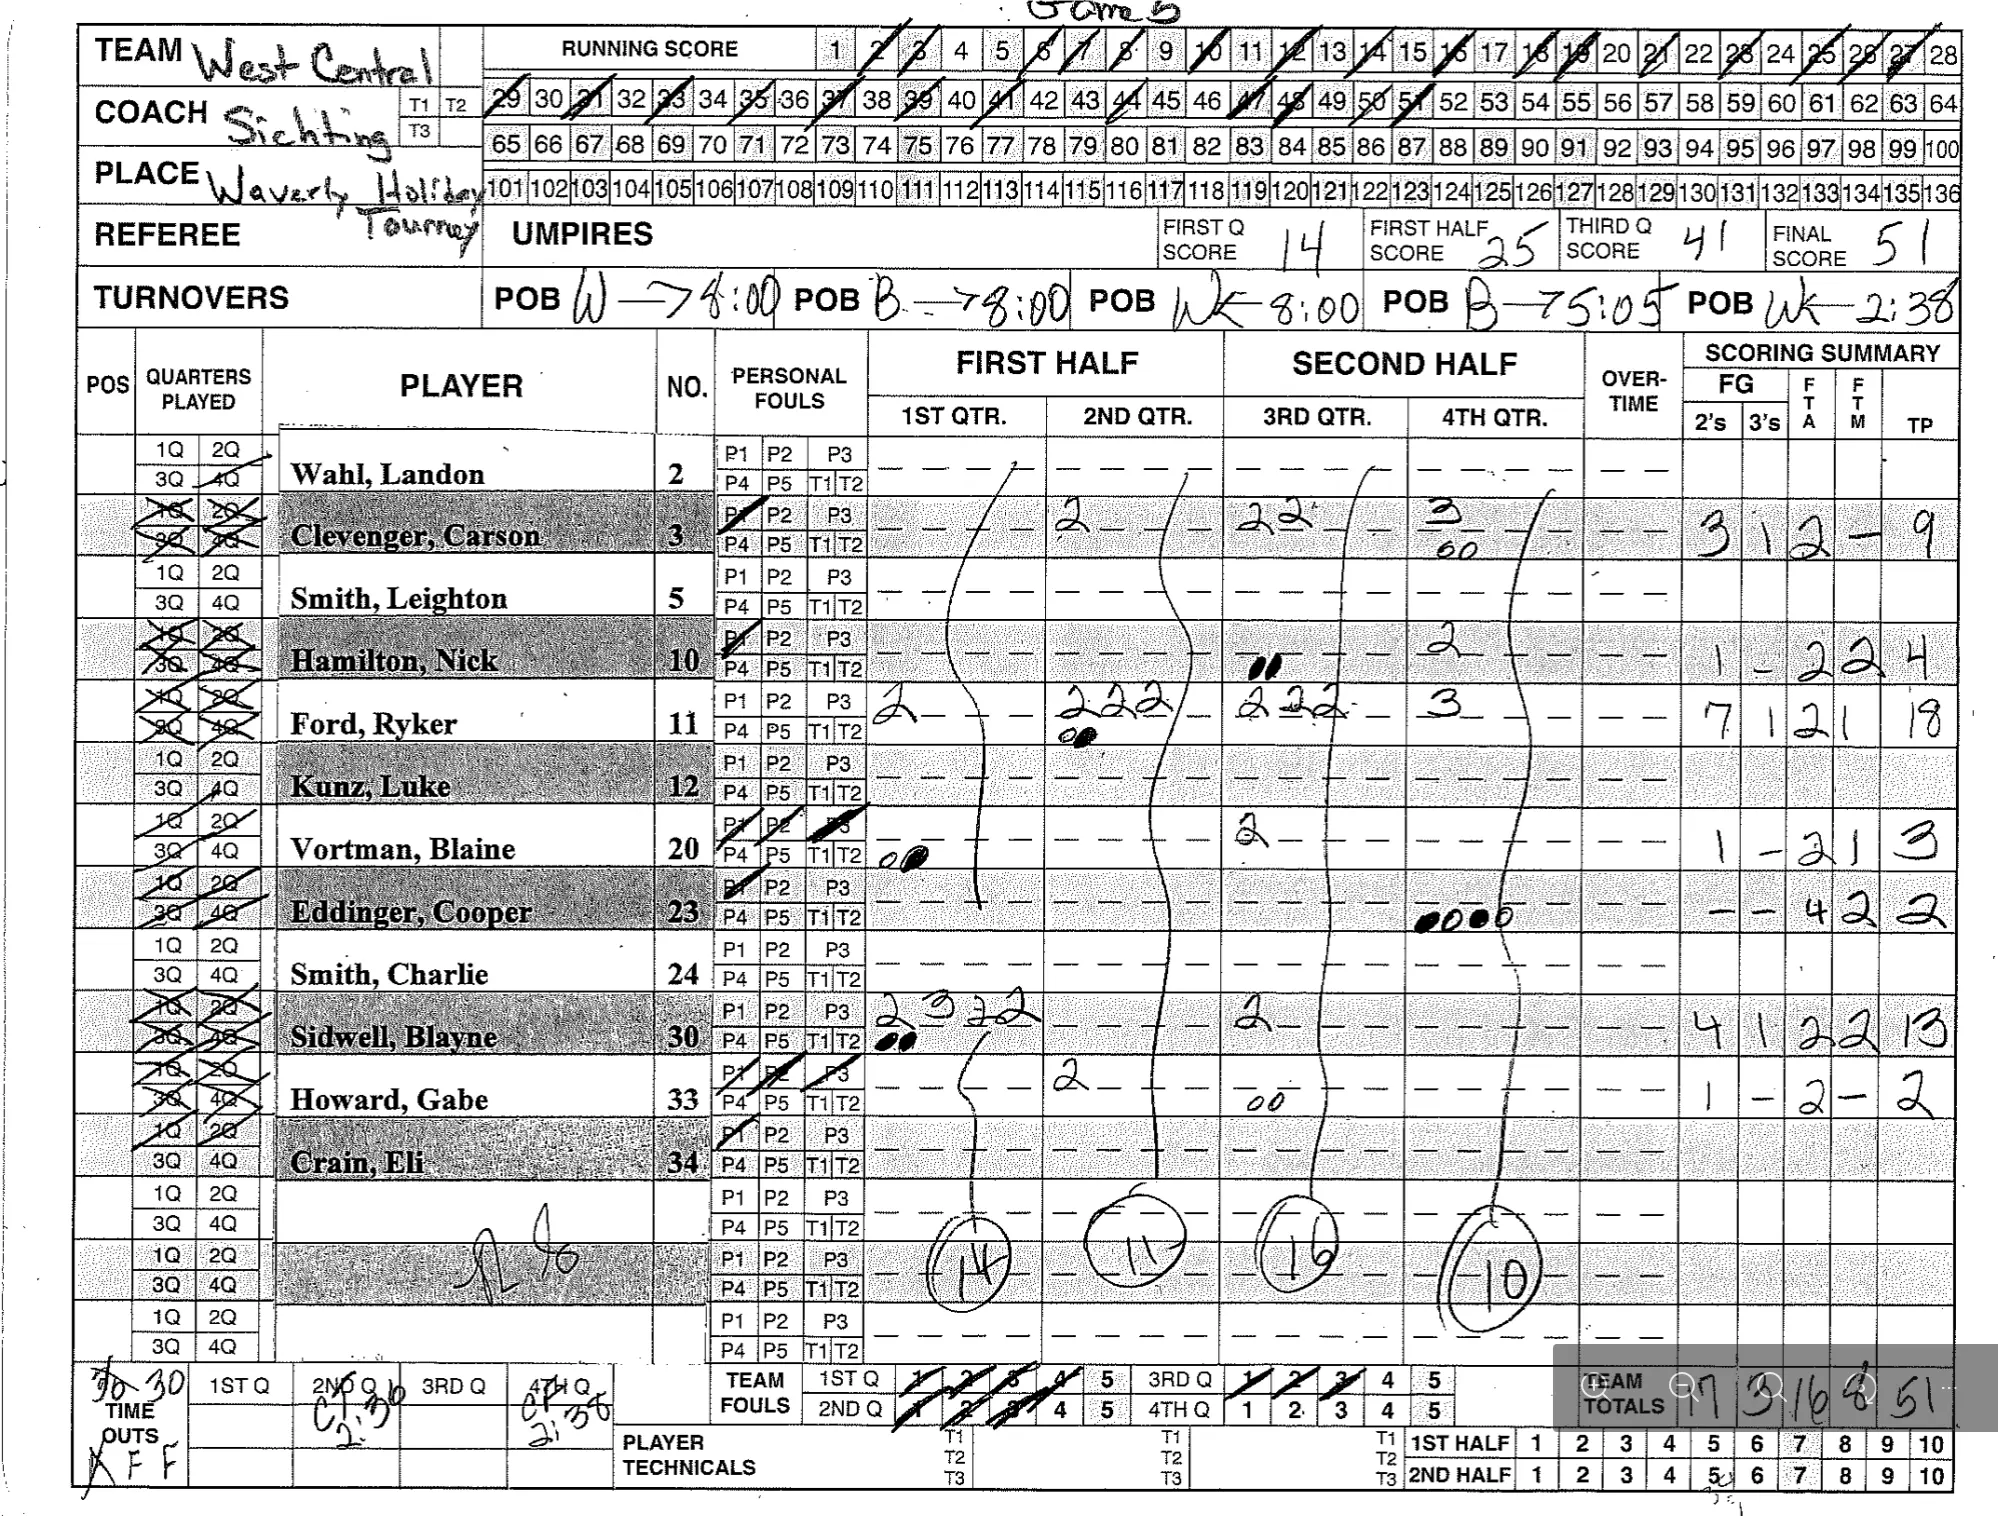 Game 5
TEAM West Central
COACH Sichting T1 T2 T3
PLACE Waverly Holiday Tourney
RUNNING SCORE 1 2 3 4 5 6 7 8 9 10 11 12 13 14 15 16 17 18 19 20 21 22 23 24 25 26 27 28
29 30 31 32 33 34 35 36 37 38 39 40 41 42 43 44 45 46 47 48 49 50 51 52 53 54 55 56 57 58 59 60 61 62 63 64
65 66 67 68 69 70 71 72 73 74 75 76 77 78 79 80 81 82 83 84 85 86 87 88 89 90 91 92 93 94 95 96 97 98 99 100
101 102 103 104 105 106 107 108 109 110 111 112 113 114 115 116 117 118 119 120 121 122 123 124 125 126 127 128 129 130 131 132 133 134 135 136
REFEREE UMPIRES FIRST Q SCORE 14 FIRST HALF SCORE 25 THIRD Q SCORE 41 FINAL SCORE 51
TURNOVERS POB W → 8:00 POB B → 8:00 POB W ← 8:00 POB B → 5:05 POB W ← 2:38
POS QUARTERS PLAYED PLAYER NO. PERSONAL FOULS FIRST HALF SECOND HALF OVER-TIME SCORING SUMMARY
1ST QTR. 2ND QTR. 3RD QTR. 4TH QTR. FG 2's 3's FTA FTM TP
1Q 2Q 3Q 4Q Wahl, Landon 2 P1 P2 P3 P4 P5 T1 T2
1Q 2Q 3Q 4Q Clevenger, Carson 3 P1 P2 P3 P4 P5 T1 T2 2 2 2 3 00 3 1 2 - 9
1Q 2Q 3Q 4Q Smith, Leighton 5 P1 P2 P3 P4 P5 T1 T2
1Q 2Q 3Q 4Q Hamilton, Nick 10 P1 P2 P3 P4 P5 T1 T2 2 1 - 2 2 4
1Q 2Q 3Q 4Q Ford, Ryker 11 P1 P2 P3 P4 P5 T1 T2 2 2 2 2 2 2 2 3 7 1 2 1 18
1Q 2Q 3Q 4Q Kunz, Luke 12 P1 P2 P3 P4 P5 T1 T2
1Q 2Q 3Q 4Q Vortman, Blaine 20 P1 P2 P3 P4 P5 T1 T2 2 1 - 2 1 3
1Q 2Q 3Q 4Q Eddinger, Cooper 23 P1 P2 P3 P4 P5 T1 T2 - - 4 2 2
1Q 2Q 3Q 4Q Smith, Charlie 24 P1 P2 P3 P4 P5 T1 T2
1Q 2Q 3Q 4Q Sidwell, Blayne 30 P1 P2 P3 P4 P5 T1 T2 2 3 2 2 2 4 1 2 2 13
1Q 2Q 3Q 4Q Howard, Gabe 33 P1 P2 P3 P4 P5 T1 T2 2 00 1 - 2 - 2
1Q 2Q 3Q 4Q Crain, Eli 34 P1 P2 P3 P4 P5 T1 T2
1Q 2Q 3Q 4Q P1 P2 P3 P4 P5 T1 T2
1Q 2Q 3Q 4Q P1 P2 P3 P4 P5 T1 T2 14 11 16 10
1Q 2Q 3Q 4Q P1 P2 P3 P4 P5 T1 T2
30 30 TIME OUTS F F 1ST Q 2ND Q 2:36 3RD Q 4TH Q 2:38
TEAM FOULS 1ST Q 1 2 3 4 5 3RD Q 1 2 3 4 5 TEAM TOTALS 17 3 16 8 51
2ND Q 1 2 3 4 5 4TH Q 1 2 3 4 5
PLAYER TECHNICALS T1 T2 T3 T1 T2 T3 T1 T2 T3
1ST HALF 1 2 3 4 5 6 7 8 9 10
2ND HALF 1 2 3 4 5 6 7 8 9 10